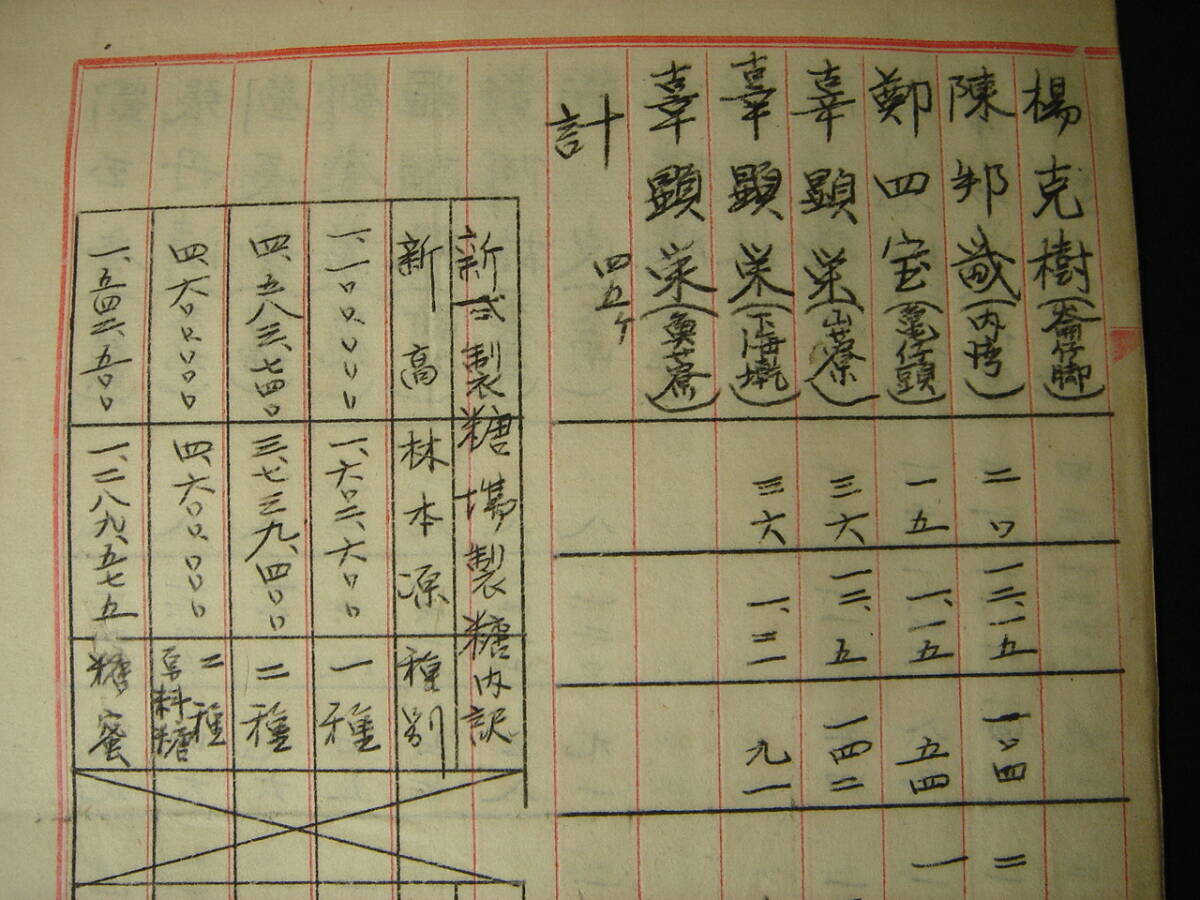 楊克樹（崙仔脚）
陳邦畿（内湾） 二〇 一二、一五 一〇四 二
鄭四宝（亀仔頭） 一五 一、一五 五四 一
辜顕栄（山藔） 三六 一二、五 一四二
辜顕栄（下海墘） 三六 一、二一 九一
辜顕栄（奥藔）
計 四五ヶ
新式製糖場製糖内訳
新高 林本源 種別
一、一〇〇、〇〇〇 一、六〇二、六〇〇 一種
四、五八三、七四〇 三、七三九、四〇〇 二種
四、六〇〇、〇〇〇 四、六〇〇、〇〇〇 二種原料糖
一、五四二、五〇〇 一、二八九、五七五 糖蜜